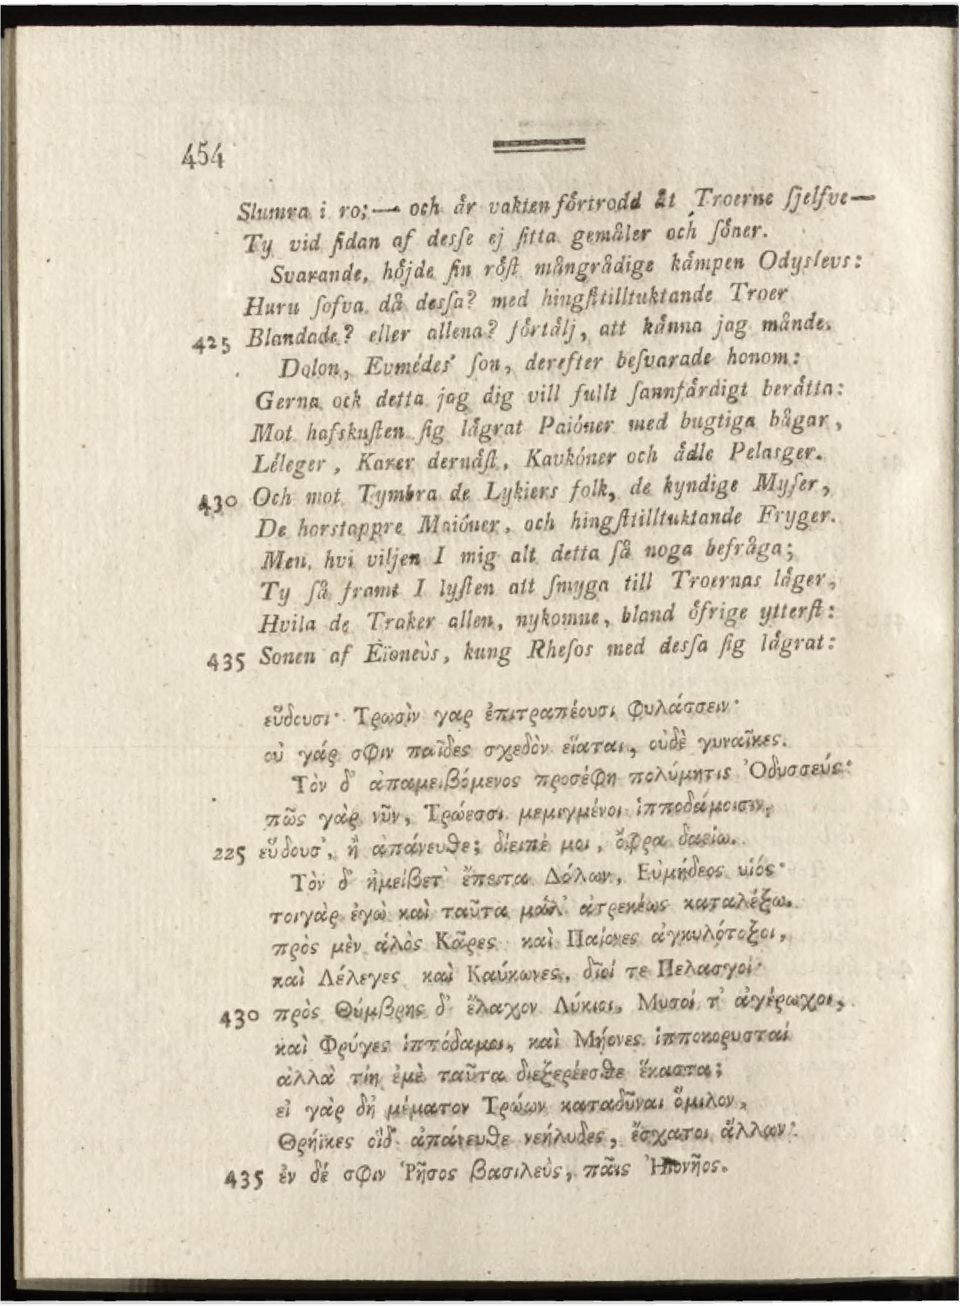 454
Slumra i ro; — och år vakten förtrodd åt Troerne ſjelfve —
Ty vid ſidan af desſe ej ſitta gemåler och ſöner.
Svarande, höjde ſin röſt mångrådige kåmpen Odysſevs:
Huru ſofva då desſa? med hingſttilltuktande Troer
425 Blandade? eller allena? förtålj, att kånna jag månde.
Dolon, Evmédes' ſon, derefter beſvarade honom:
Gerna ock detta jag dig vill fullt ſannfårdigt beråtta:
Mot hafskuſten ſig lågrat Paióner med bugtiga bågar,
Léleger, Karer dernåſt, Kavkóner och ådle Pelasger.
430 Och mot Tymbra de Lykiers folk, de kyndige Myſer,
De horstappre Maióner, och hingſttilltuktande Fryger.
Men, hvi viljen I mig alt detta ſå noga befråga;
Ty ſå framt I lyſten att ſmyga till Troernas låger,
Hvila de Traker allen, nykomne, bland öfrige ytterſt:
435 Sonen af Éioneùs, kung Rheſos med desſa ſig lågrat:
εὕδουσι· Τρωσὶν γαρ ἐπιτραπέουσι φυλάσσειν·
οὐ γάρ σφιν παῖδες σχεδὸν εἵαται, οὐδὲ γυναῖκες.
Τὸν δ' ἀπαμειβόμενος προσέφη πολύμητις Ὀδυσσεύς·
πῶς γὰρ νῦν, Τρώεσσι μεμιγμένοι ἱπποδάμοισιν,
225 εὕδουσ', ἢ ἀπάνευθε; δίειπέ μοι, ὄφρα δαείω.
Τὸν δ' ἠμείβετ' ἔπειτα Δόλων, Εὐμήδεος υἱός·
τοιγὰρ ἐγὼ καὶ ταῦτα μάλ' ἀτρεκέως καταλέξω.
πρὸς μὲν ἁλὸς Κᾶρες καὶ Παίονες ἀγκυλότοξοι,
καὶ Λέλεγες καὶ Καύκωνες, δῖοί τε Πελασγοί·
430 πρὸς Θύμβρης δ' ἔλαχον Λύκιοι, Μυσοί τ' ἀγέρωχοι,
καὶ Φρύγες ἱππόδαμοι, καὶ Μῄονες ἱπποκορυσταί
ἀλλὰ τίη ἐμὲ ταῦτα διεξερέεσθε ἕκαστα;
εἰ γὰρ δὴ μέματον Τρώων καταδῦναι ὅμιλον,
Θρήϊκες οἵδ' ἀπάνευθε νεήλυδες, ἔσχατοι ἄλλων·
435 ἐν δέ σφιν Ῥῆσος βασιλεὺς, πάϊς Ἠϊονῆος.